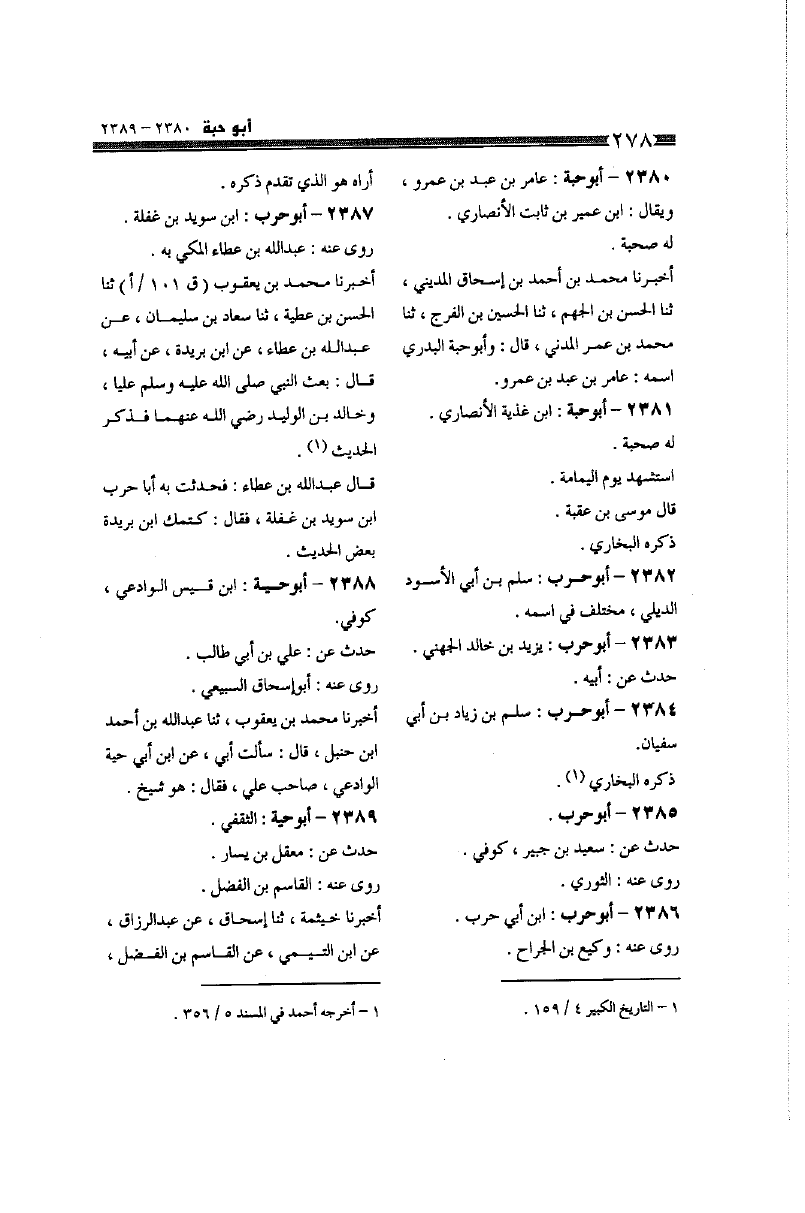 أبو حبة ٢٣٨٠ – ٢٣٨٩
٢٧٨
٢٣٨٠ – أبو حبة : عامر بن عبد بن عمرو ،
ويقال : ابن عمير بن ثابت الأنصاري .
له صحبة .
أخبرنا محمد بن أحمد بن إسحاق المديني ،
ثنا الحسن بن الجهم ، ثنا الحسين بن الفرج ، ثنا
محمد بن عمر المدني ، قال : وأبو حبة البدري
اسمه : عامر بن عبد بن عمرو.
٢٣٨١ – أبو حبة : ابن غذية الأنصاري .
له صحبة .
استشهد يوم اليمامة .
قال موسى بن عقبة .
ذكره البخاري .
٢٣٨٢ – أبو حرب : سلم بن أبي الأسود
الديلي ، مختلف في اسمه .
٢٣٨٣ – أبو حرب : يزيد بن خالد الجهني .
حدث عن : أبيه .
٢٣٨٤ – أبو حرب : سلم بن زياد بن أبي
سفيان.
ذكره البخاري (١) .
٢٣٨٥ – أبو حرب .
حدث عن : سعيد بن جبير ، كوفي .
روى عنه : الثوري .
٢٣٨٦ – أبو حرب : ابن أبي حرب .
روى عنه : وكيع بن الجراح .
١ – التاريخ الكبير ٤ / ١٥٩ .
أراه هو الذي تقدم ذكره .
٢٣٨٧ – أبو حرب : ابن سويد بن غفلة .
روى عنه : عبدالله بن عطاء المكي به .
أخبرنا محمد بن يعقوب (ق ١٠١ /أ) ثنا
الحسن بن عطية ، ثنا سعاد بن سليمان ، عن
عبدالله بن عطاء ، عن ابن بريدة ، عن أبيه ،
قال : بعث النبي صلى الله عليه وسلم عليا ،
وخالد بن الوليد رضي الله عنهما فذكر
الحديث (١) .
قال عبدالله بن عطاء : فحدثت به أبا حرب
ابن سويد بن غفلة ، فقال : كتمك ابن بريدة
بعض الحديث .
٢٣٨٨ – أبو حية : ابن قيس الوادعي ،
كوفي.
حدث عن : علي بن أبي طالب .
روى عنه : أبو إسحاق السبيعي .
أخبرنا محمد بن يعقوب ، ثنا عبدالله بن أحمد
ابن حنبل ، قال : سألت أبي ، عن ابن أبي حية
الوادعي ، صاحب علي ، فقال : هو شيخ .
٢٣٨٩ – أبو حية : الثقفي .
حدث عن : معقل بن يسار .
روى عنه : القاسم بن الفضل .
أخبرنا خيثمة ، ثنا إسحاق ، عن عبدالرزاق ،
عن ابن التيمي ، عن القاسم بن الفضل ،
١ – أخرجه أحمد في المسند ٥ / ٣٥٦ .